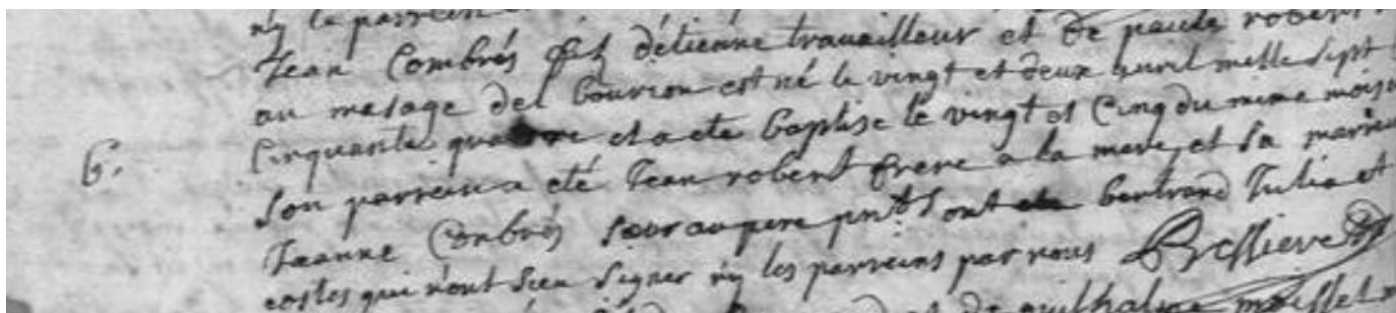 ny le parrein
Jean Combrés fils détienne travailleur et de paule robert
au masage del bouriou est né le vingt et deux avril mille sept
b. Cinquante quatre et a eté baptisé le vingt et cinq du même mois
son parrein a eté Jean robert frere a la mere, et sa marrei
Jeanne Combrés sœur au pere pnts ont bertrand Julia et
costes qui n'ont sceu signer ny les parreins par nous Bressieres
de guilhalme maissel